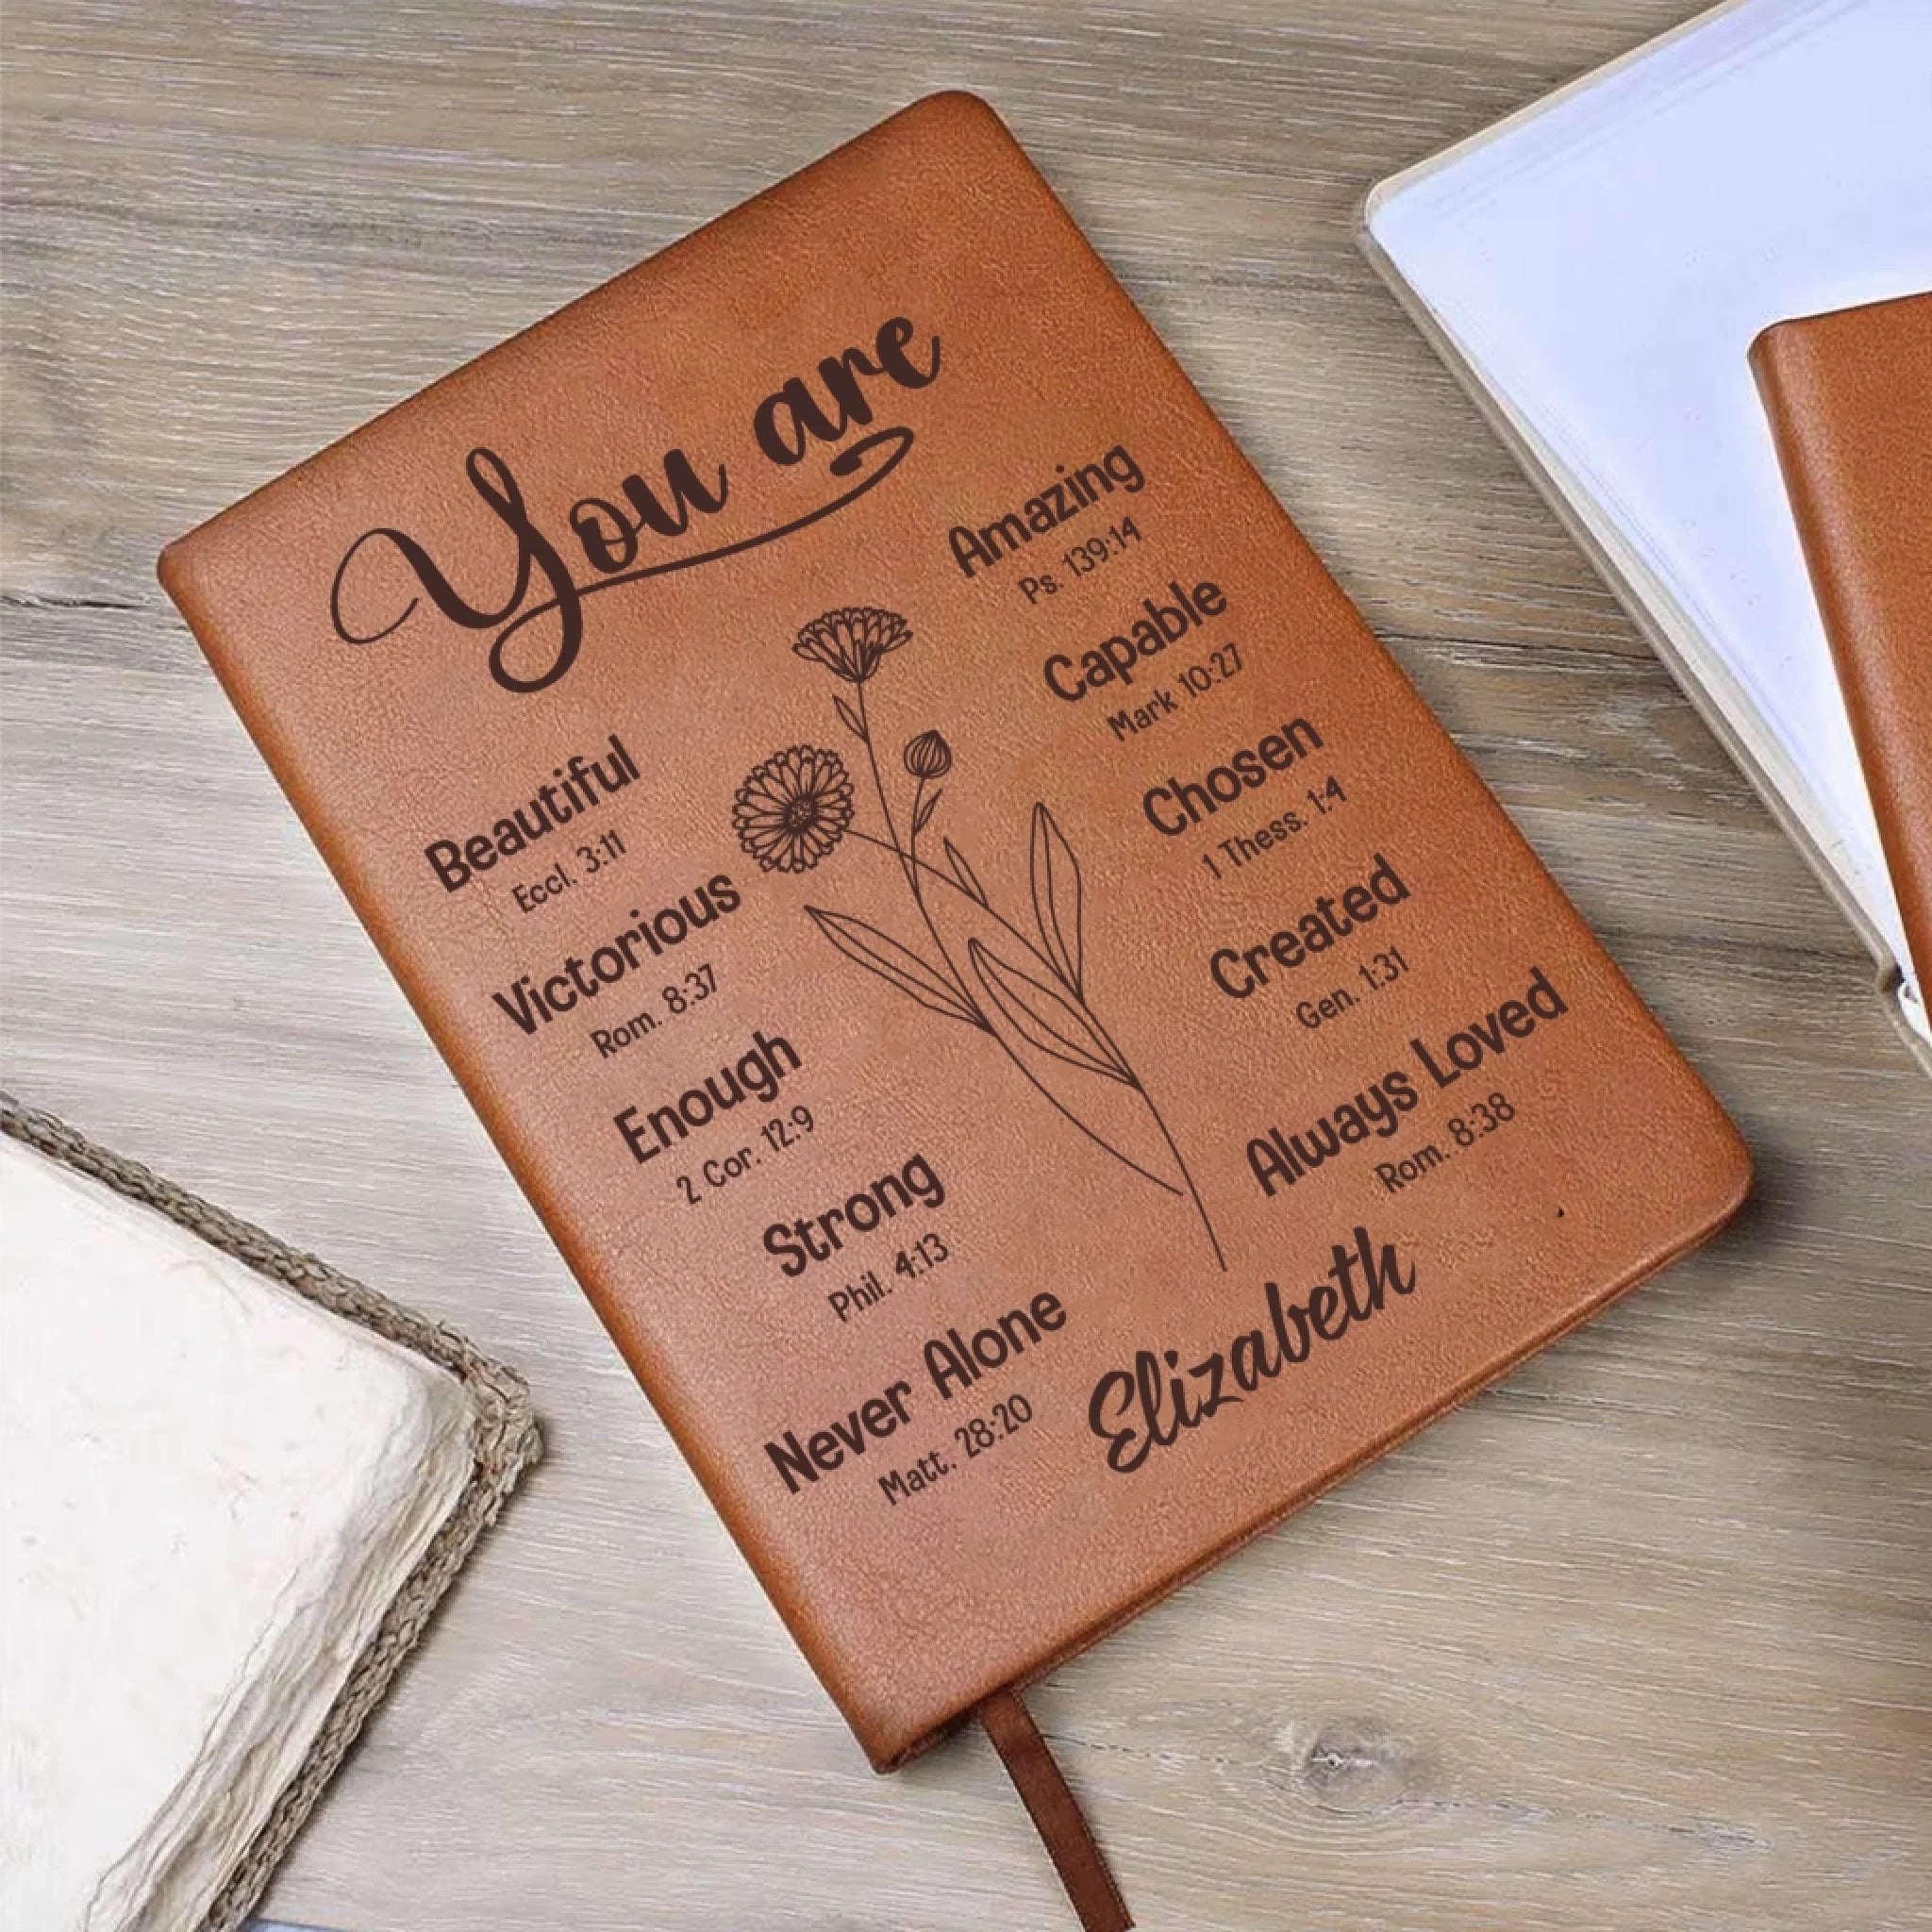 You are
Beautiful
Eccl. 3:11
Victorious
Rom. 8:37
Enough
2 Cor. 12:9
Strong
Phil. 4:13
Never Alone
Matt. 28:20
Amazing
Ps. 139:14
Capable
Mark 10:27
Chosen
1 Thess. 1:4
Created
Gen. 1:31
Always Loved
Rom. 8:38
Elizabeth